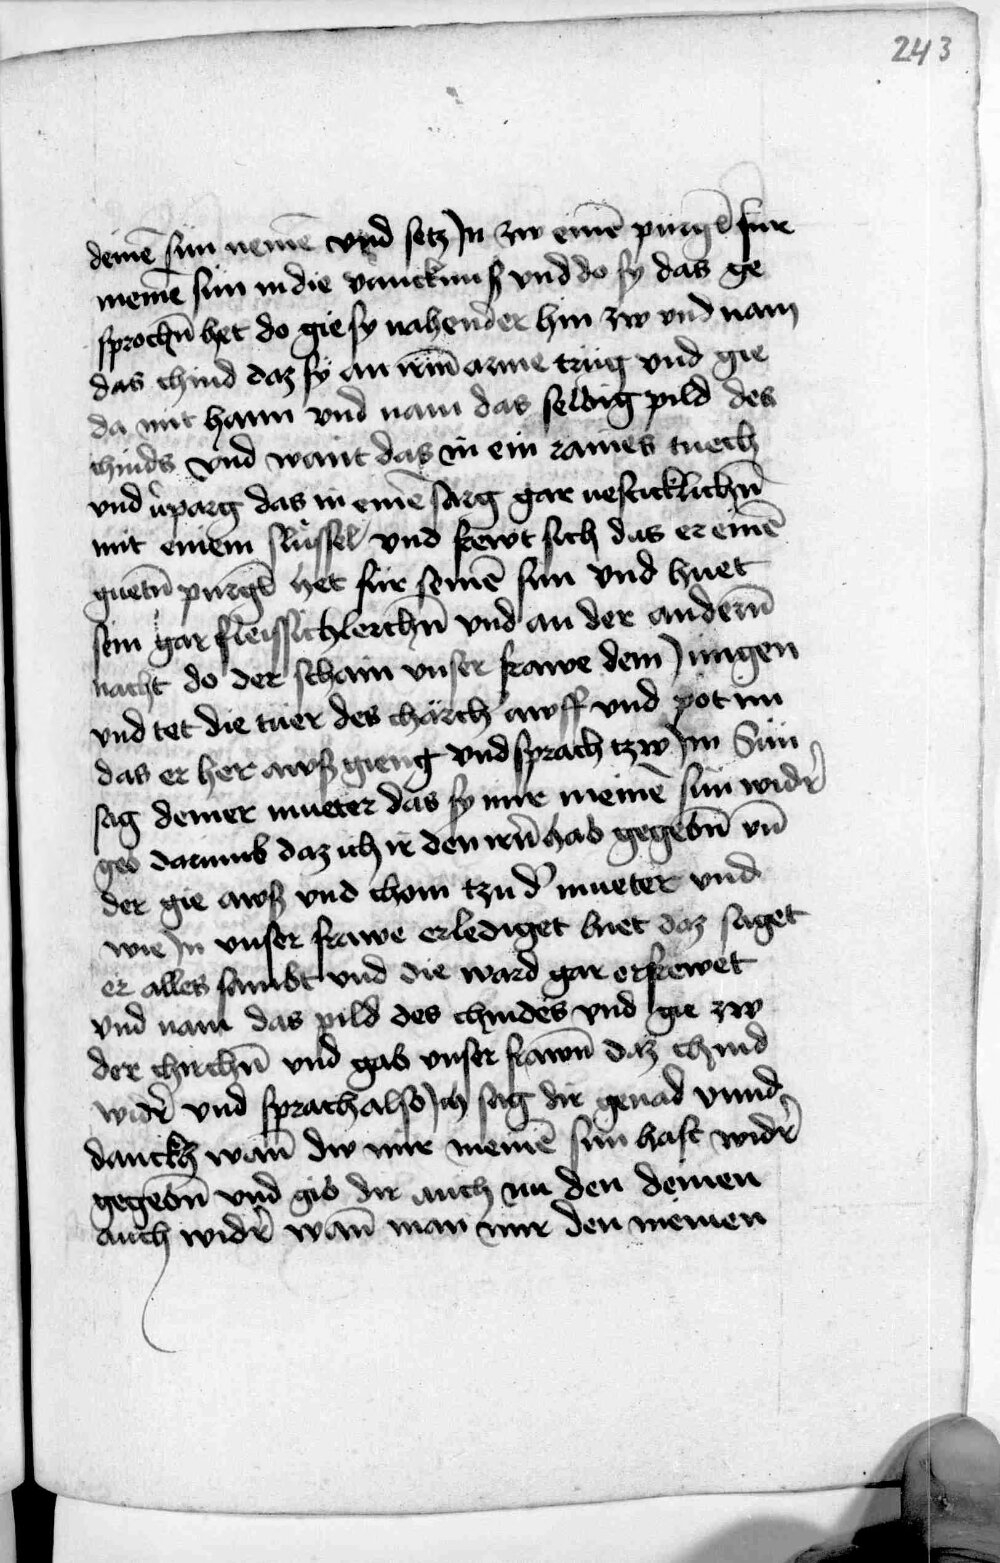 243
deinē sun nemē vnd setz jn zw einē purgn̄ fur
meinē sun in die vancknuß vnd do sy das ge
sprochn̄ het do gie sy nahender hin zw vnd nam
das chind daz sy an irm̄ arme trüg vnd gie
da mit haim vnd nam das selbig pild des
chinds vnd want das in ein raines tuech
vnd v̓parg das in einē sarg gar vesticklichn̄
mit einem slüssel vnd frewt sich das er einē
guetn̄ purgn̄ het für seinē sun vnd huet
sein gar fleissichlerchn̄ vnd an der andern̄
nacht do der schain vnser frawe dem jungen
vnd tet die tuer des chärch awff vnd pot im
das er her awß gieng vnd sprach tzw jm Sün
sag deiner mueter das sy mir meinē sun widr̓
geb darumb daz ich ir den irn̄ hab gegebn̄ vn̄
der gie awß vnd chom tzu d̓ mueter vnd
wie jn vnser frawe erlediget huet daz saget
er alles sambt vnd die ward gar erfrewet
vnd nam das pild des chindes vnd gie zw
der chirchn̄ vnd gab vnser frawn̄ daz chind
widr̓ vnd sprach also jch sag dir genad vnnd
danckh wan̄ dw mir meinē sun hast widr̓
gegebn̄ vnd gib dir auch nu den deinen
auch widr̓ wan̄ man mir den meinen